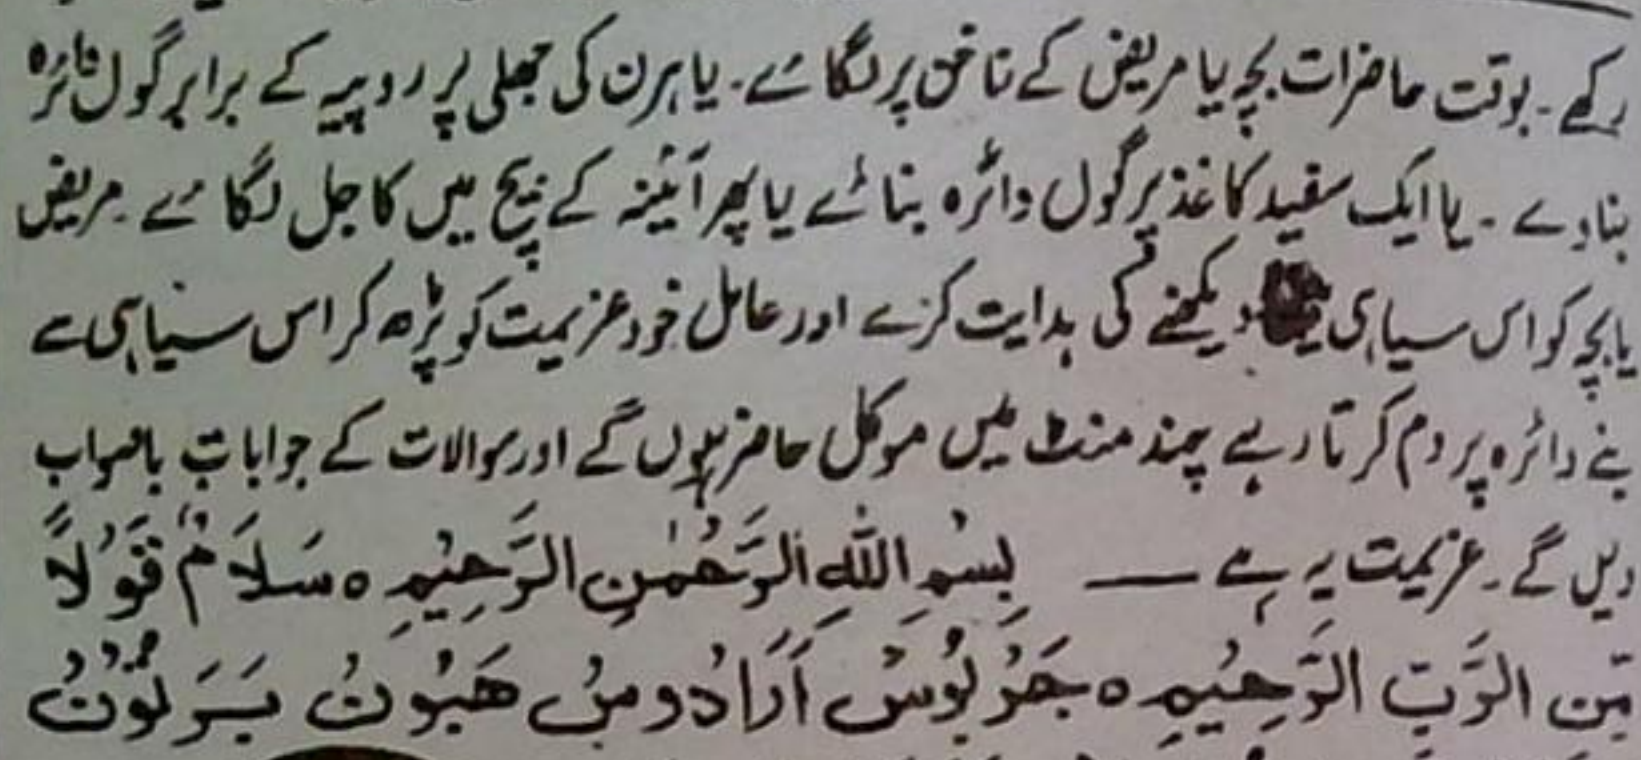 رکھے ۔ بوقت حاضرات بچہ یا مریض کے ناخن پر لگائے ۔ یا ہرن کی جھلی پر روپیہ کے برابر گول دائرہ
بنا دے ۔ یا ایک سفید کاغذ پر گول دائرہ بنائے یا پھر آئینہ کے بیچ میں کاجل لگائے ۔ مریض
یا بچہ کو اس سیاہی دیکھنے کی ہدایت کرے اور عامل خود عزیمت کو پڑھ کر اس سیاہی سے
بنے دائرہ پر دم کرتا رہے چند منٹ میں موکل حاضر ہوں گے اور سوالات کے جوابات باصواب
دیں گے ۔ عزیمت یہ ہے ــــ بِسْمِ اللهِ الرَّحْمٰنِ الرَّحِيْمِ ہ سَلَامٌ قَوْلًا
مِّن الرَّبِّ الرَّحِيْمِ ہ جَرْبُوْسٌ اَرَادُومِنُ هَبُوْنُ